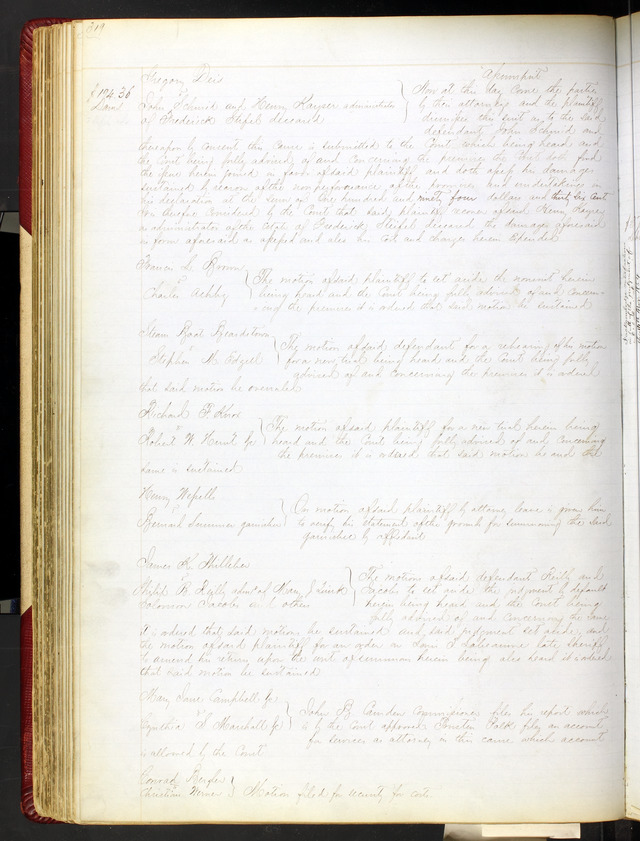 319
Gregory Deis
vs
John Schmid and Henry Kayser administrator
of Frederick Steifel deceased
$194.36
Assumpsit
Now at this day come the parties
by their attorneys and the plaintiff
dismisses this suit as to the said
defendant John Schmid and
thereupon by consent this cause is submitted to the Court which being heard and
the Court being fully advised of and concerning the premises the Court doth find
the issue herein joined in favor of said plaintiff and doth assess his damages
sustained by reason of the non performance of the promises and undertakings in
his declaration at the sum of One hundred and ninety four dollars and thirty six cents
considered by the Court that said plaintiff recover of said Henry Kayser
as administrator of the estate of Frederick Steifel deceased the damages aforesaid
in form aforesaid as assessed and also his costs and charges herein expended
Francis L. Brown
vs
Charles Achby
The motion of said plaintiff to set aside the nonsuit herein
being heard and the Court being fully advised of and concern-
ing the premises it is ordered that said motion be sustained
Steam Boat Beardstown
Stephen M. Edgell
The motion of said defendant for a rehearing of his motion
for a new trial being heard and the Court being fully
advised of and concerning the premises it is ordered
that said motion be overruled
Richard F.
vs
Robert W. Hunt Jr
The motion of said plaintiff for a new trial herein being
heard and the Court being fully advised of and concerning
the premises it is ordered that said motion be and the
same is sustained
Henry
vs
Bernard garnishee
On motion of said plaintiff by attorney leave is given him
to verify his statement of the grounds for summoning the said
garnishee by affidavit
James K.
vs
Philip B. Reilly admr of
Solomon Jacobs and others
The motion of said defendant Reilly and
Jacobs to set aside the judgment by default
herein being heard and the Court being
fully advised of and concerning the same
it is ordered that said motion be sustained and said judgment set aside, and
the motion of said plaintiff for an order on Louis T. Labeaume late sheriff
to amend his return upon the writ of summons herein being also heard it is ordered
that said motion be sustained
Mary Jane Campbell Jr
vs
Cynthia S. Marshall Jr
John B. Camden Commissioner files his report which
is by the Court approved. Trusten Polk files an account
for services as attorney in this cause which account
is allowed by the Court
Conrad
vs
Christian Werner
Motion filed for security for costs.